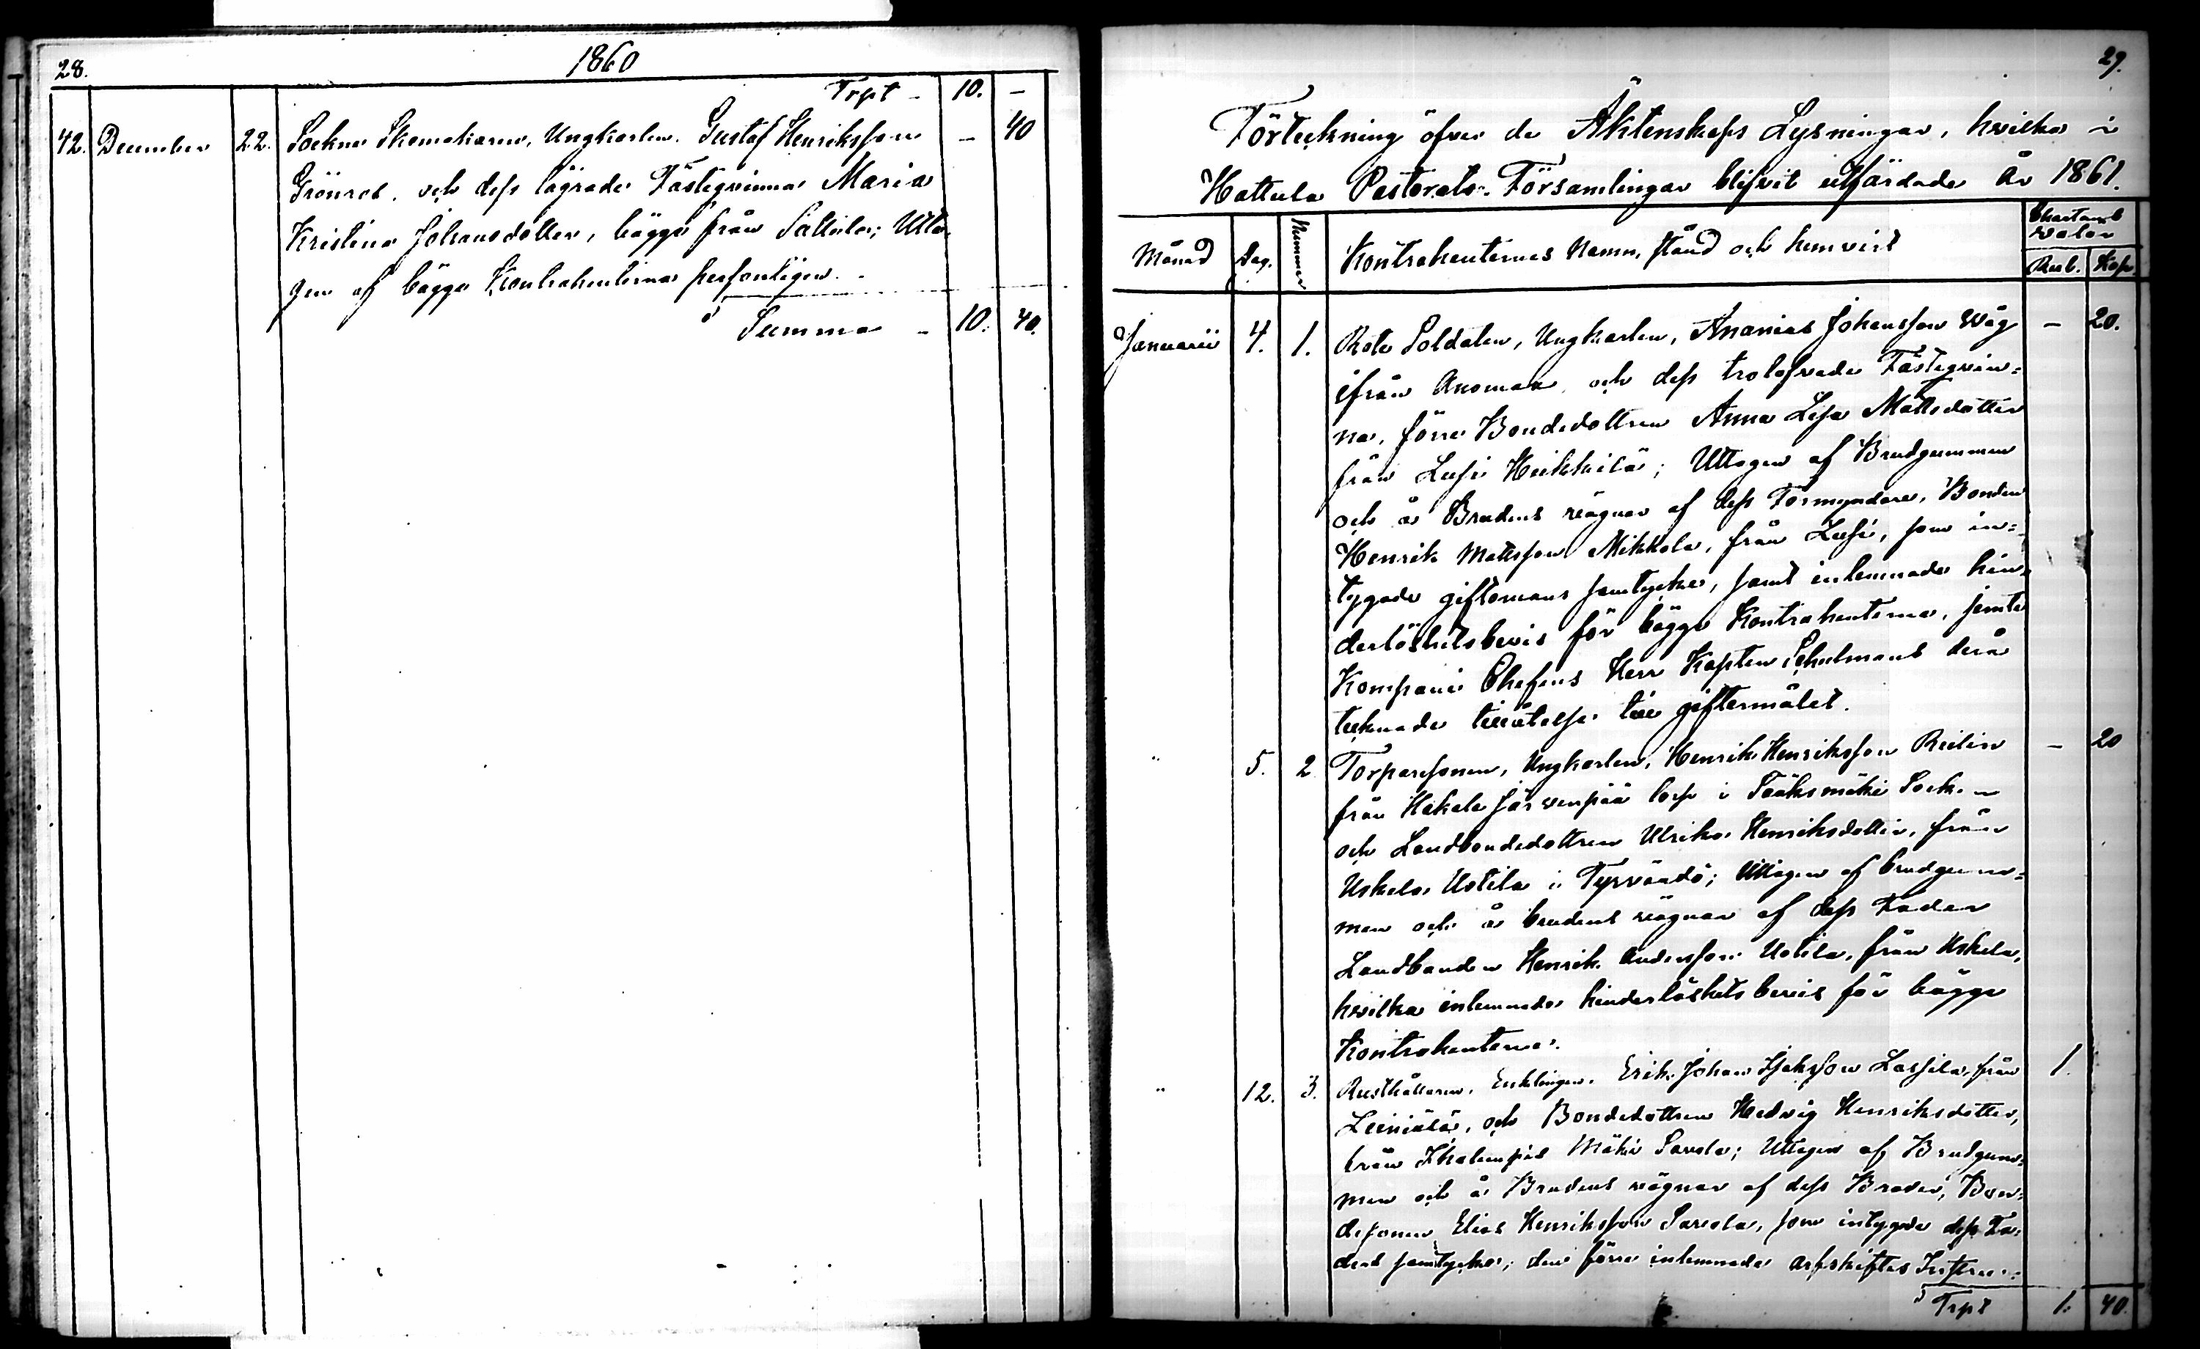 28.
1860
Trpt - 10. -
42. December 22. Sockne Skomakaren, Ungkarlen Gustaf Henriksson - 40
Grönros och dess lägrade Fästeqvinna Maria
Kristina Johansdotter, bägge från Sattula; Utta-
gen af bägge Kontrahenterna personligen.
Summa - 10. 40.
29.
Förteckning öfver de Äktenskaps Lysningar, hvilka i
Hattula Pastorats Församlingar blifvit utfärdade År 1861.
Månad Dag. Nummer Kontrahenternas Namn, stånd och hemvist Chartæ
Rub. Kop.
Januarii 4. 1. Rote Soldaten, Ungkarlen, Ananias Johansson Våg - 20.
ifrån och dess trolofvade Fästeqvin=
na, förre Bondedottren Anna Lisa Mattsdotter
från Heikkilä; Uttagen af Brudgummen
och å Brudens vägnar af dess Förmyndare, Bonden
Henrik Mattsson Mikkola, från som in=
tygade giftomans samtycke, samt inlemnade hin=
derlöshetsbevis för bägge Kontrahenterna, jemte
Kompani Chefens Herr Kapten Schulmans derå
tecknade tillåtelse till giftermålet.
" 5. 2. Torparesonen, Ungkarlen, Henrik Henriksson - 20
från Hakala Järvenpää torp i Sääksmäki Sock.
och Landbondedottren Ulrika Henriksdotter, från
Uskela Uotila i Tyrvändö; Uttagen af brudgum=
men och å brudens vägnar af dess Fader
Landbonden Henrik Andersson Uotila, från Uskela,
hvilka inlemnade hinderlöshets bevis för bägge
Kontrahenterna.
" 12. 3. Rusthållaren, Enklingen, Erik Johan Isaksson Lassila, från 1.
Leiniälä, och Bondedottren Hedvig Henriksdotter,
från Ihalempis Mäki Sarola; Uttagen af Brudgum=
men och å Brudens vägnar af dess Broder, Bon=
desonen Elias Henriksson Sarola, som intygade dess Fa=
ders samtycke; den förre inlemnade arfskiftes Instru=
Trpt 1. 40.